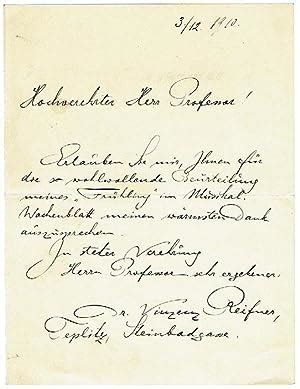 3/12. 1910.
Hochverehrter Herr Professor!
Erlauben Sie mir, Ihnen für
die so wohlwollende Beurteilung
meines „Frühling" im Musikal.
Wochenblatt meinen wärmsten Dank
auszusprechen.
In steter Verehrung
Herrn Professor sehr ergebener
Dr. Vinzenz Reifner,
Teplitz, Steinbadgasse.